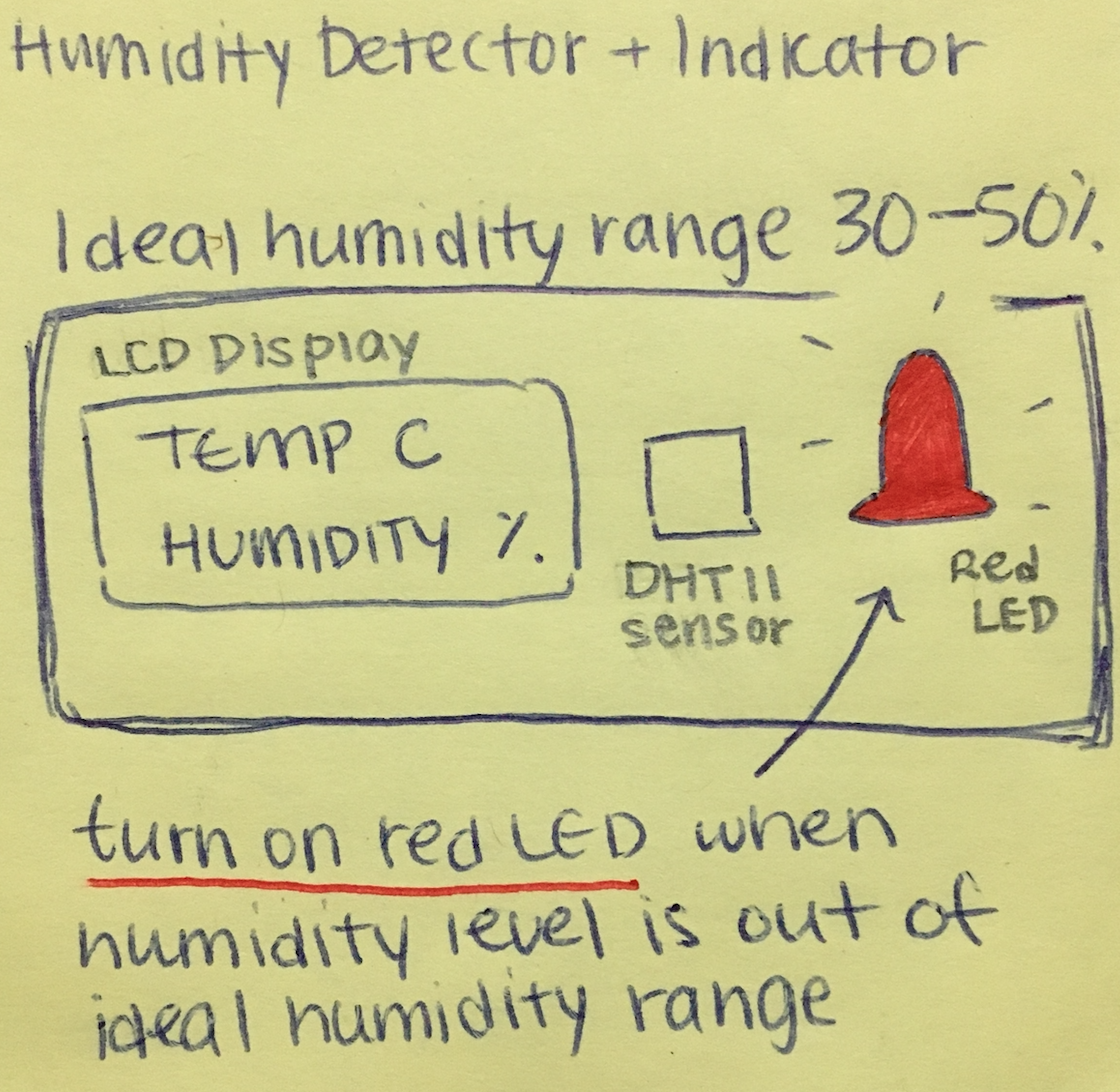 Humidity Detector + Indicator
Ideal humidity range 30-50%
LCD Display
TEMP C
HUMIDITY %
DHT11
sensor
Red
LED
turn on red LED when
humidity level is out of
ideal humidity range